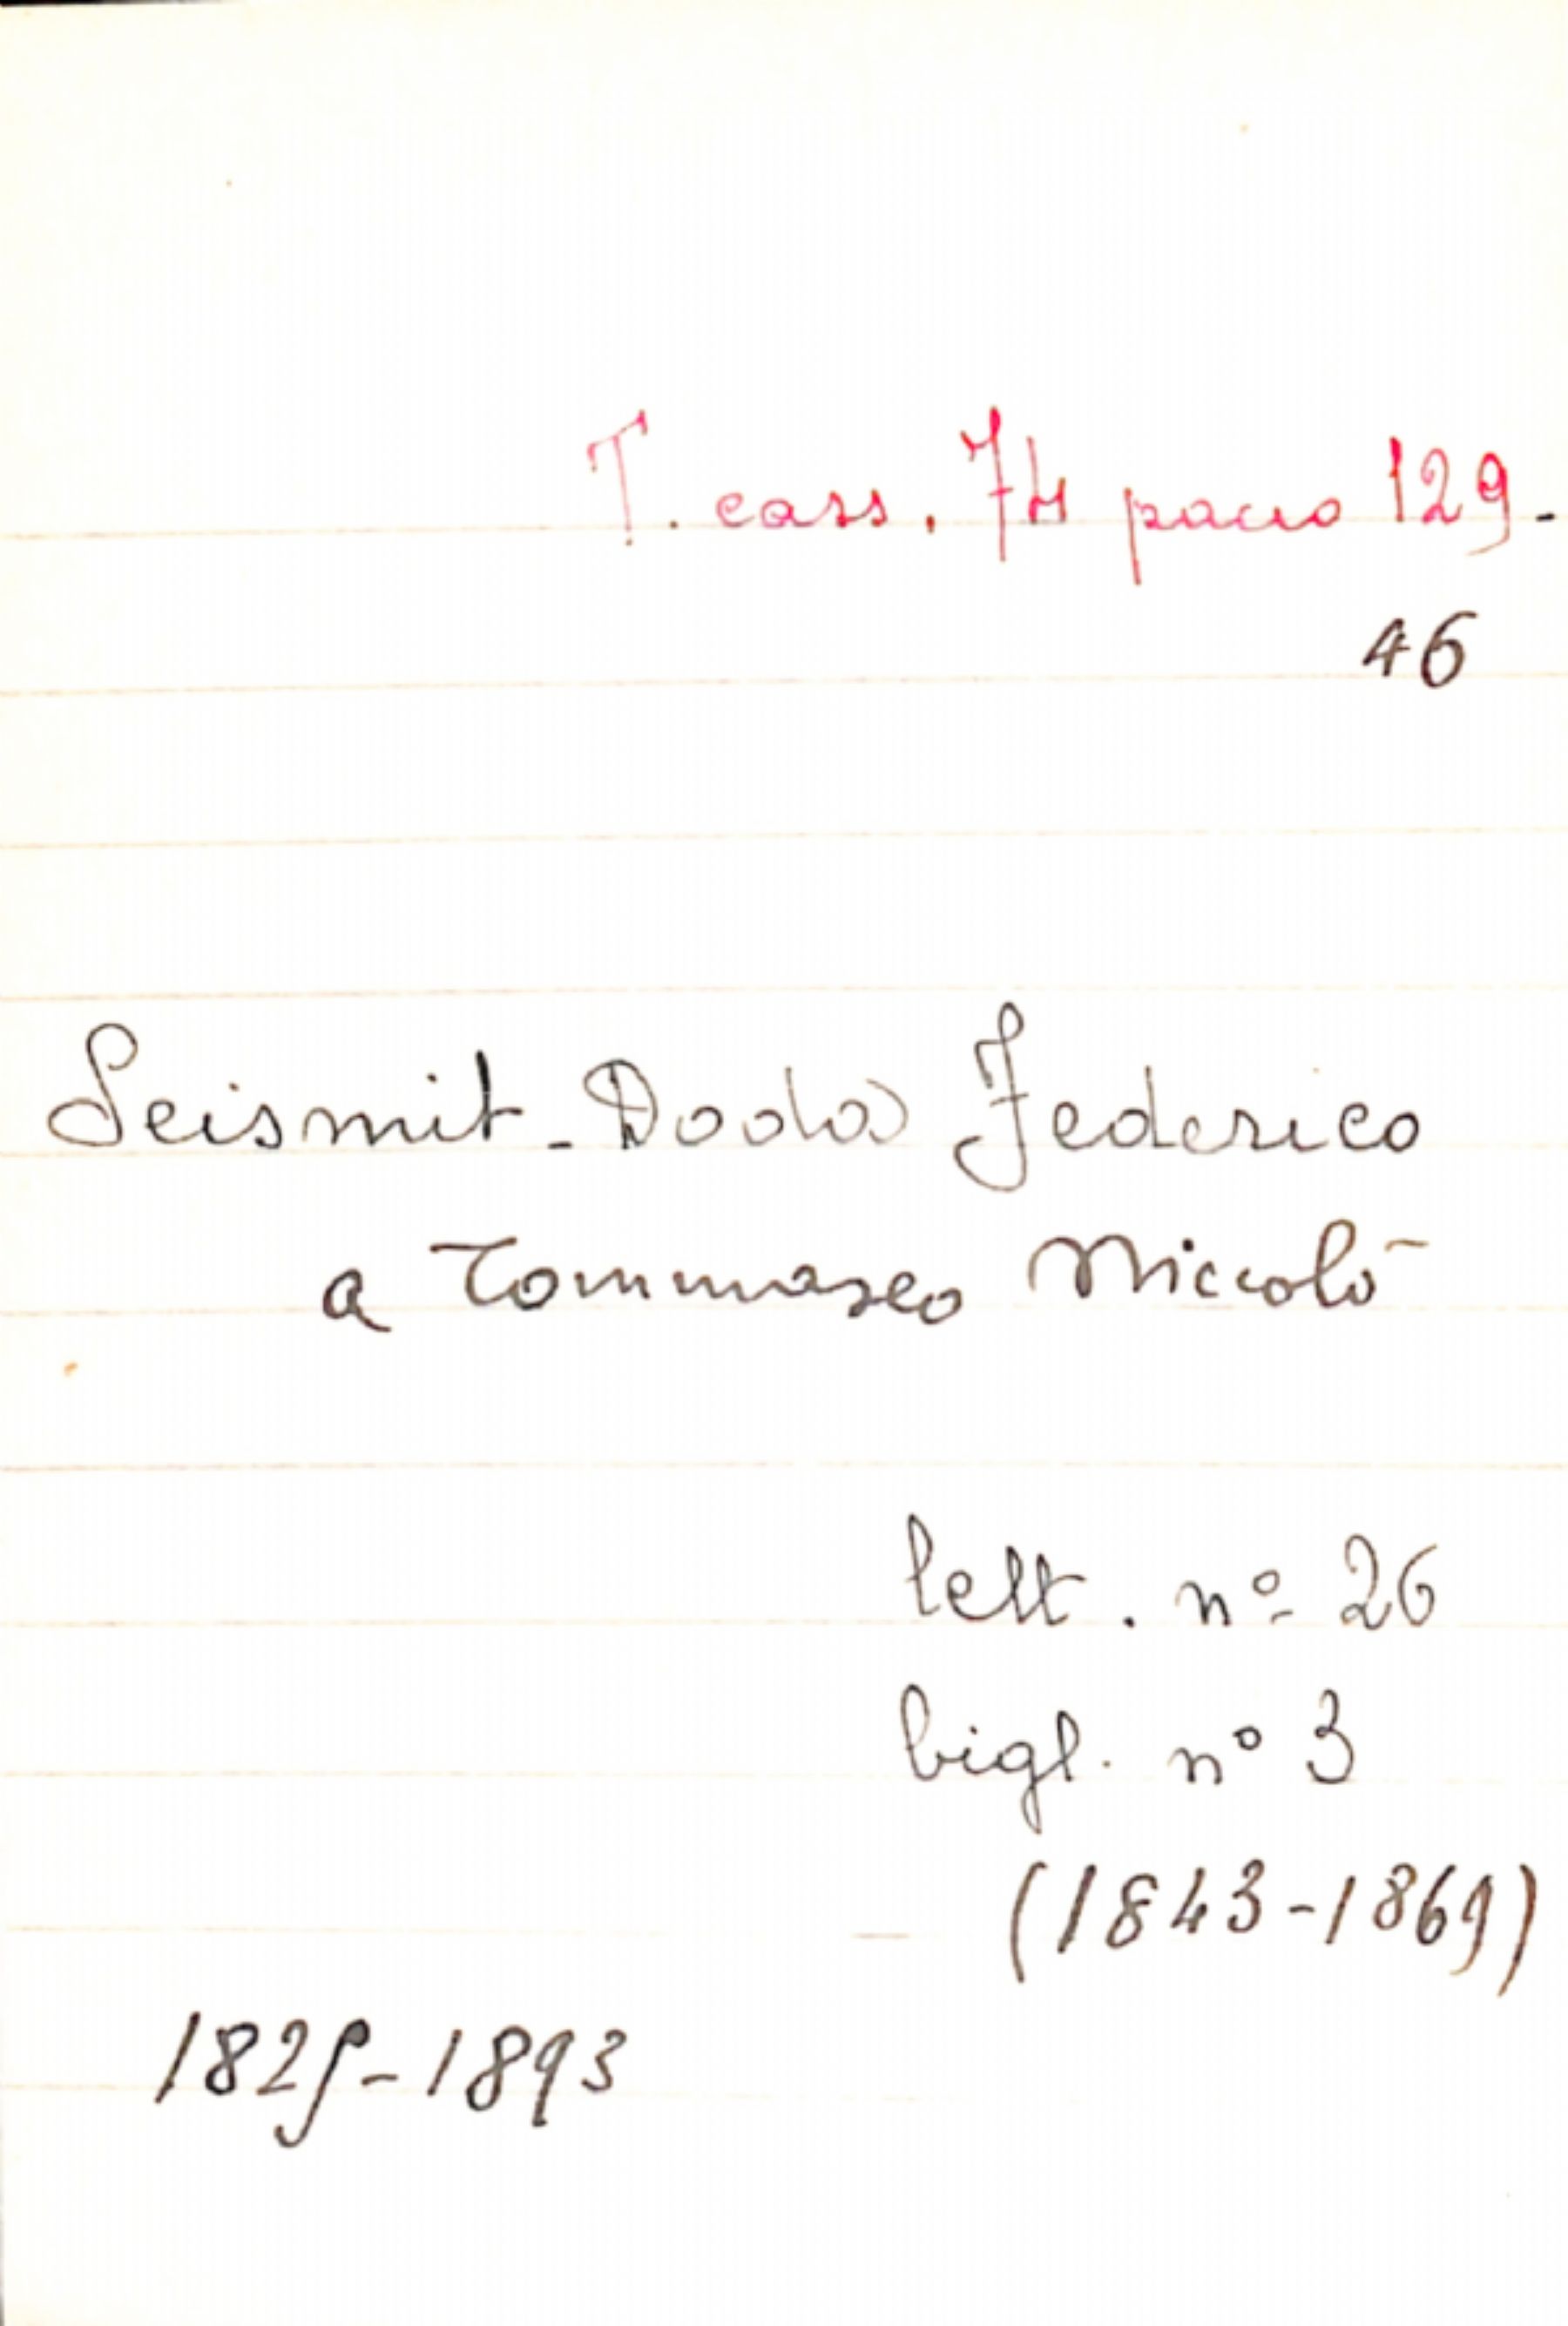 T. cass. 74 pacco 129.
46
Seismit-Doda Federico
a Tommaseo Niccolò
lett. nº 26
bigl. nº 3
(1843-1869)
1825-1893